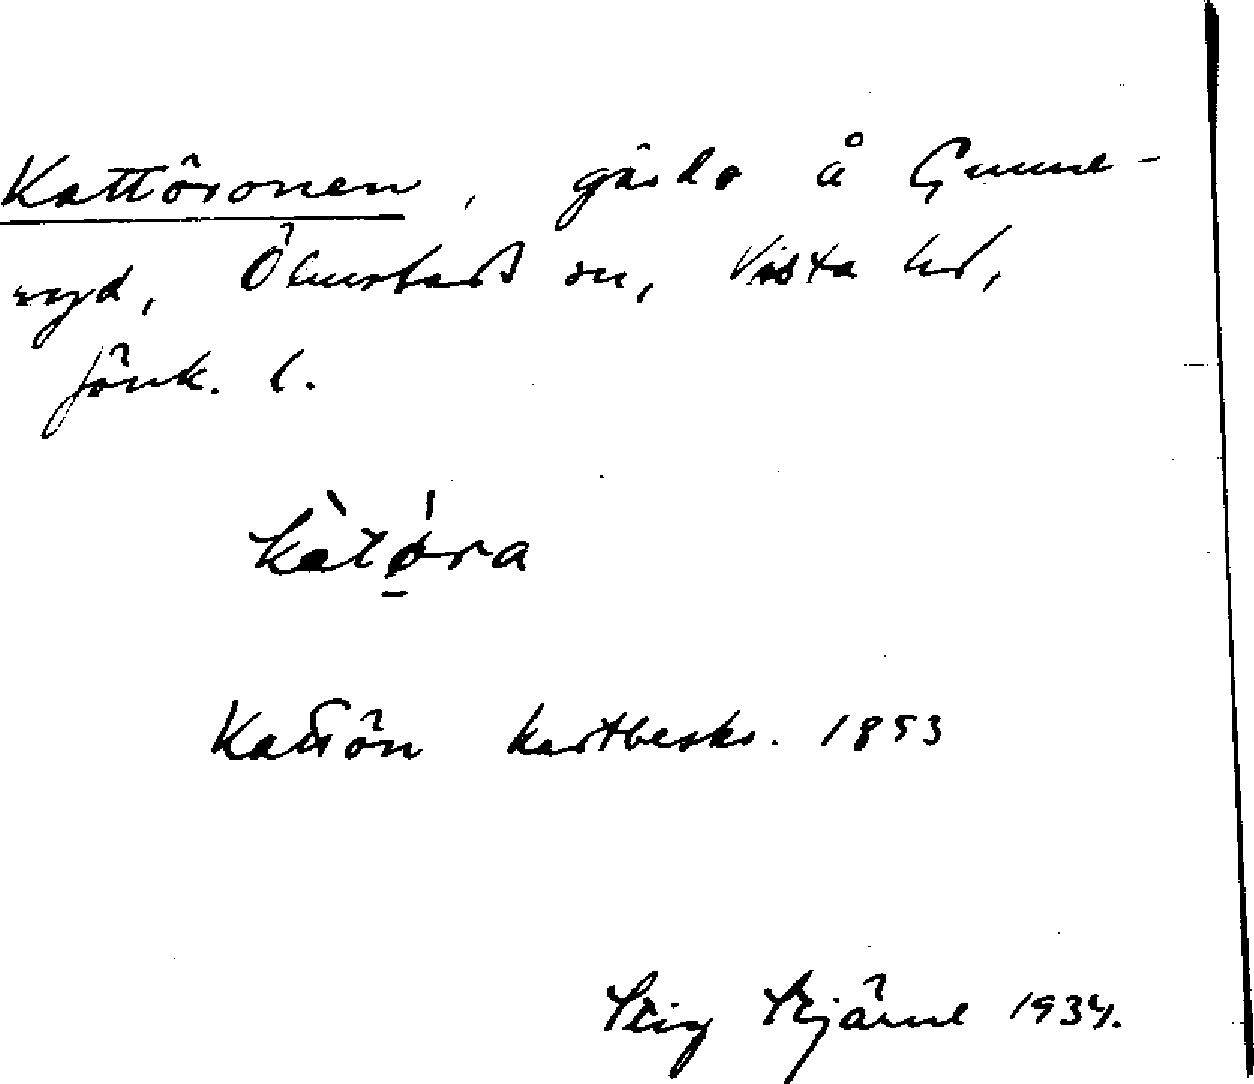 Kattöronen, gärde å Gunne-
ryd, Ölmstads sn, Vista hd,
Jönk. l.
kàtǿ̱ra
Kattön kartbeskr. 1853
Stig Stjärne 1934.